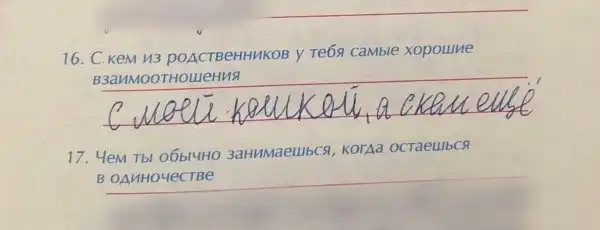 16. С кем из родственников у тебя самые хорошие
взаимоотношения
С моей кошкой, а скем ещё
17. Чем ты обычно занимаешься, когда остаешься
в одиночестве